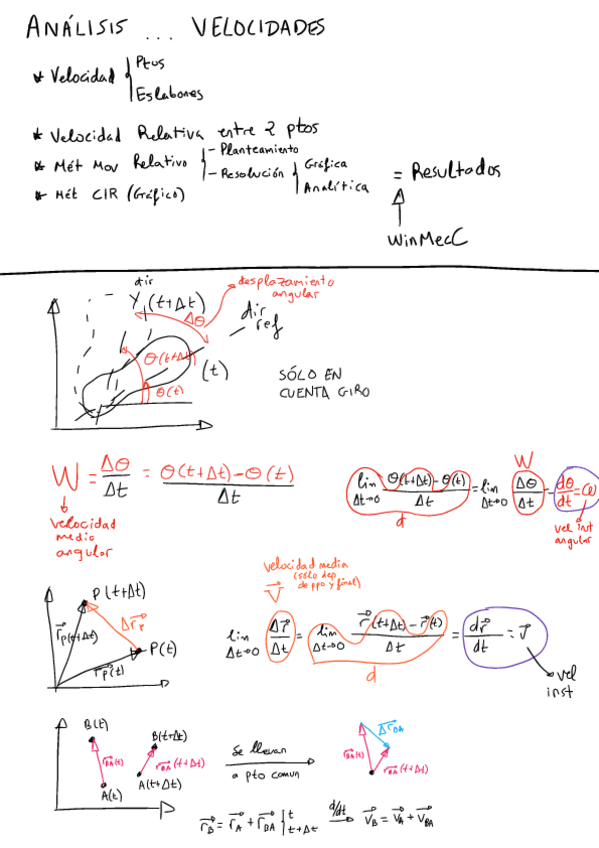 ANÁLISIS ... VELOCIDADES
* Velocidad { Ptos
Eslabones
* Velocidad Relativa entre 2 ptos
* Mét Mov Relativo { - Planteamiento
- Resolución { Gráfica
Analítica
= Resultados
* Mét CIR (Gráfico)
WinMecC
dir
(t+Δt)
desplazamiento
angular
Δθ
dir
ref
θ(t+Δt)
θ(t)
(t)
SÓLO EN
CUENTA GIRO
W = Δθ/Δt = θ(t+Δt)-θ(t)/Δt
velocidad
medio
angular
lim Δt→0 θ(t+Δt)-θ(t)/Δt = lim Δt→0 Δθ/Δt = dθ/dt = ω
W
d
vel inst
angular
velocidad media
(sólo dep
de ppo y final)
V⃗
P(t+Δt)
r⃗p(t+Δt)
Δr⃗p
P(t)
r⃗p(t)
lim Δt→0 Δr⃗/Δt = lim Δt→0 r⃗(t+Δt)-r⃗(t)/Δt = dr⃗/dt = v⃗
d
vel
inst
B(t)
B(t+Δt)
r⃗BA(t)
r⃗BA(t+Δt)
A(t)
A(t+Δt)
Se llevan
a pto comun
Δr⃗BA
r⃗BA(t)
r⃗BA(t+Δt)
r⃗B = r⃗A + r⃗BA | t
t+Δt
d/dt → v⃗B = v⃗A + v⃗BA